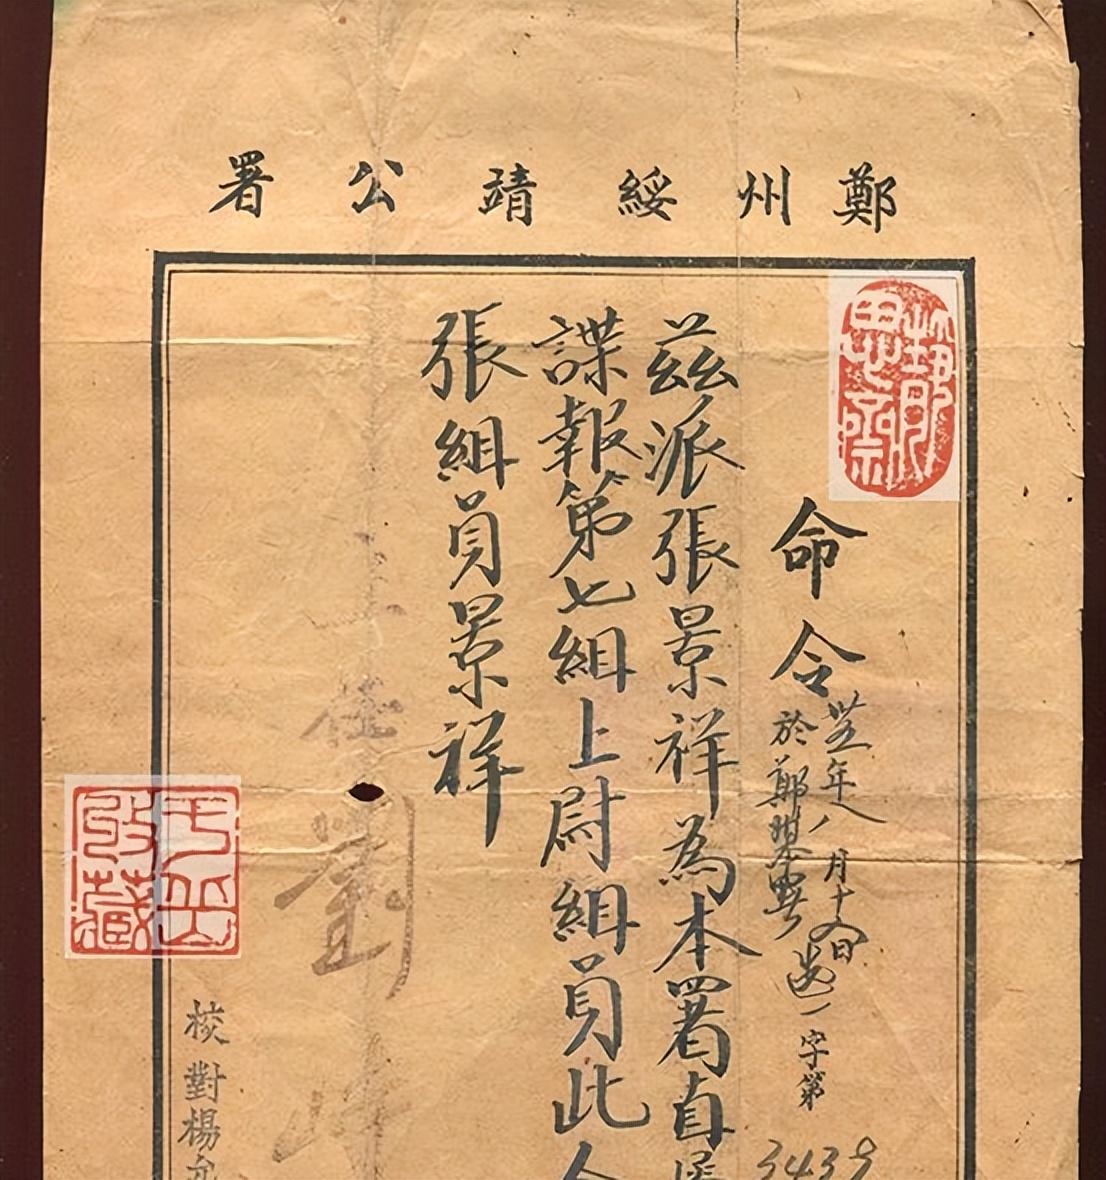 鄭州綏靖公署
命令
卅五年八月十八日
於鄭州 字第3439
茲派張景祥為本署直屬
諜報第七組上尉組員此令
張組員景祥
主任劉峙
校對楊允